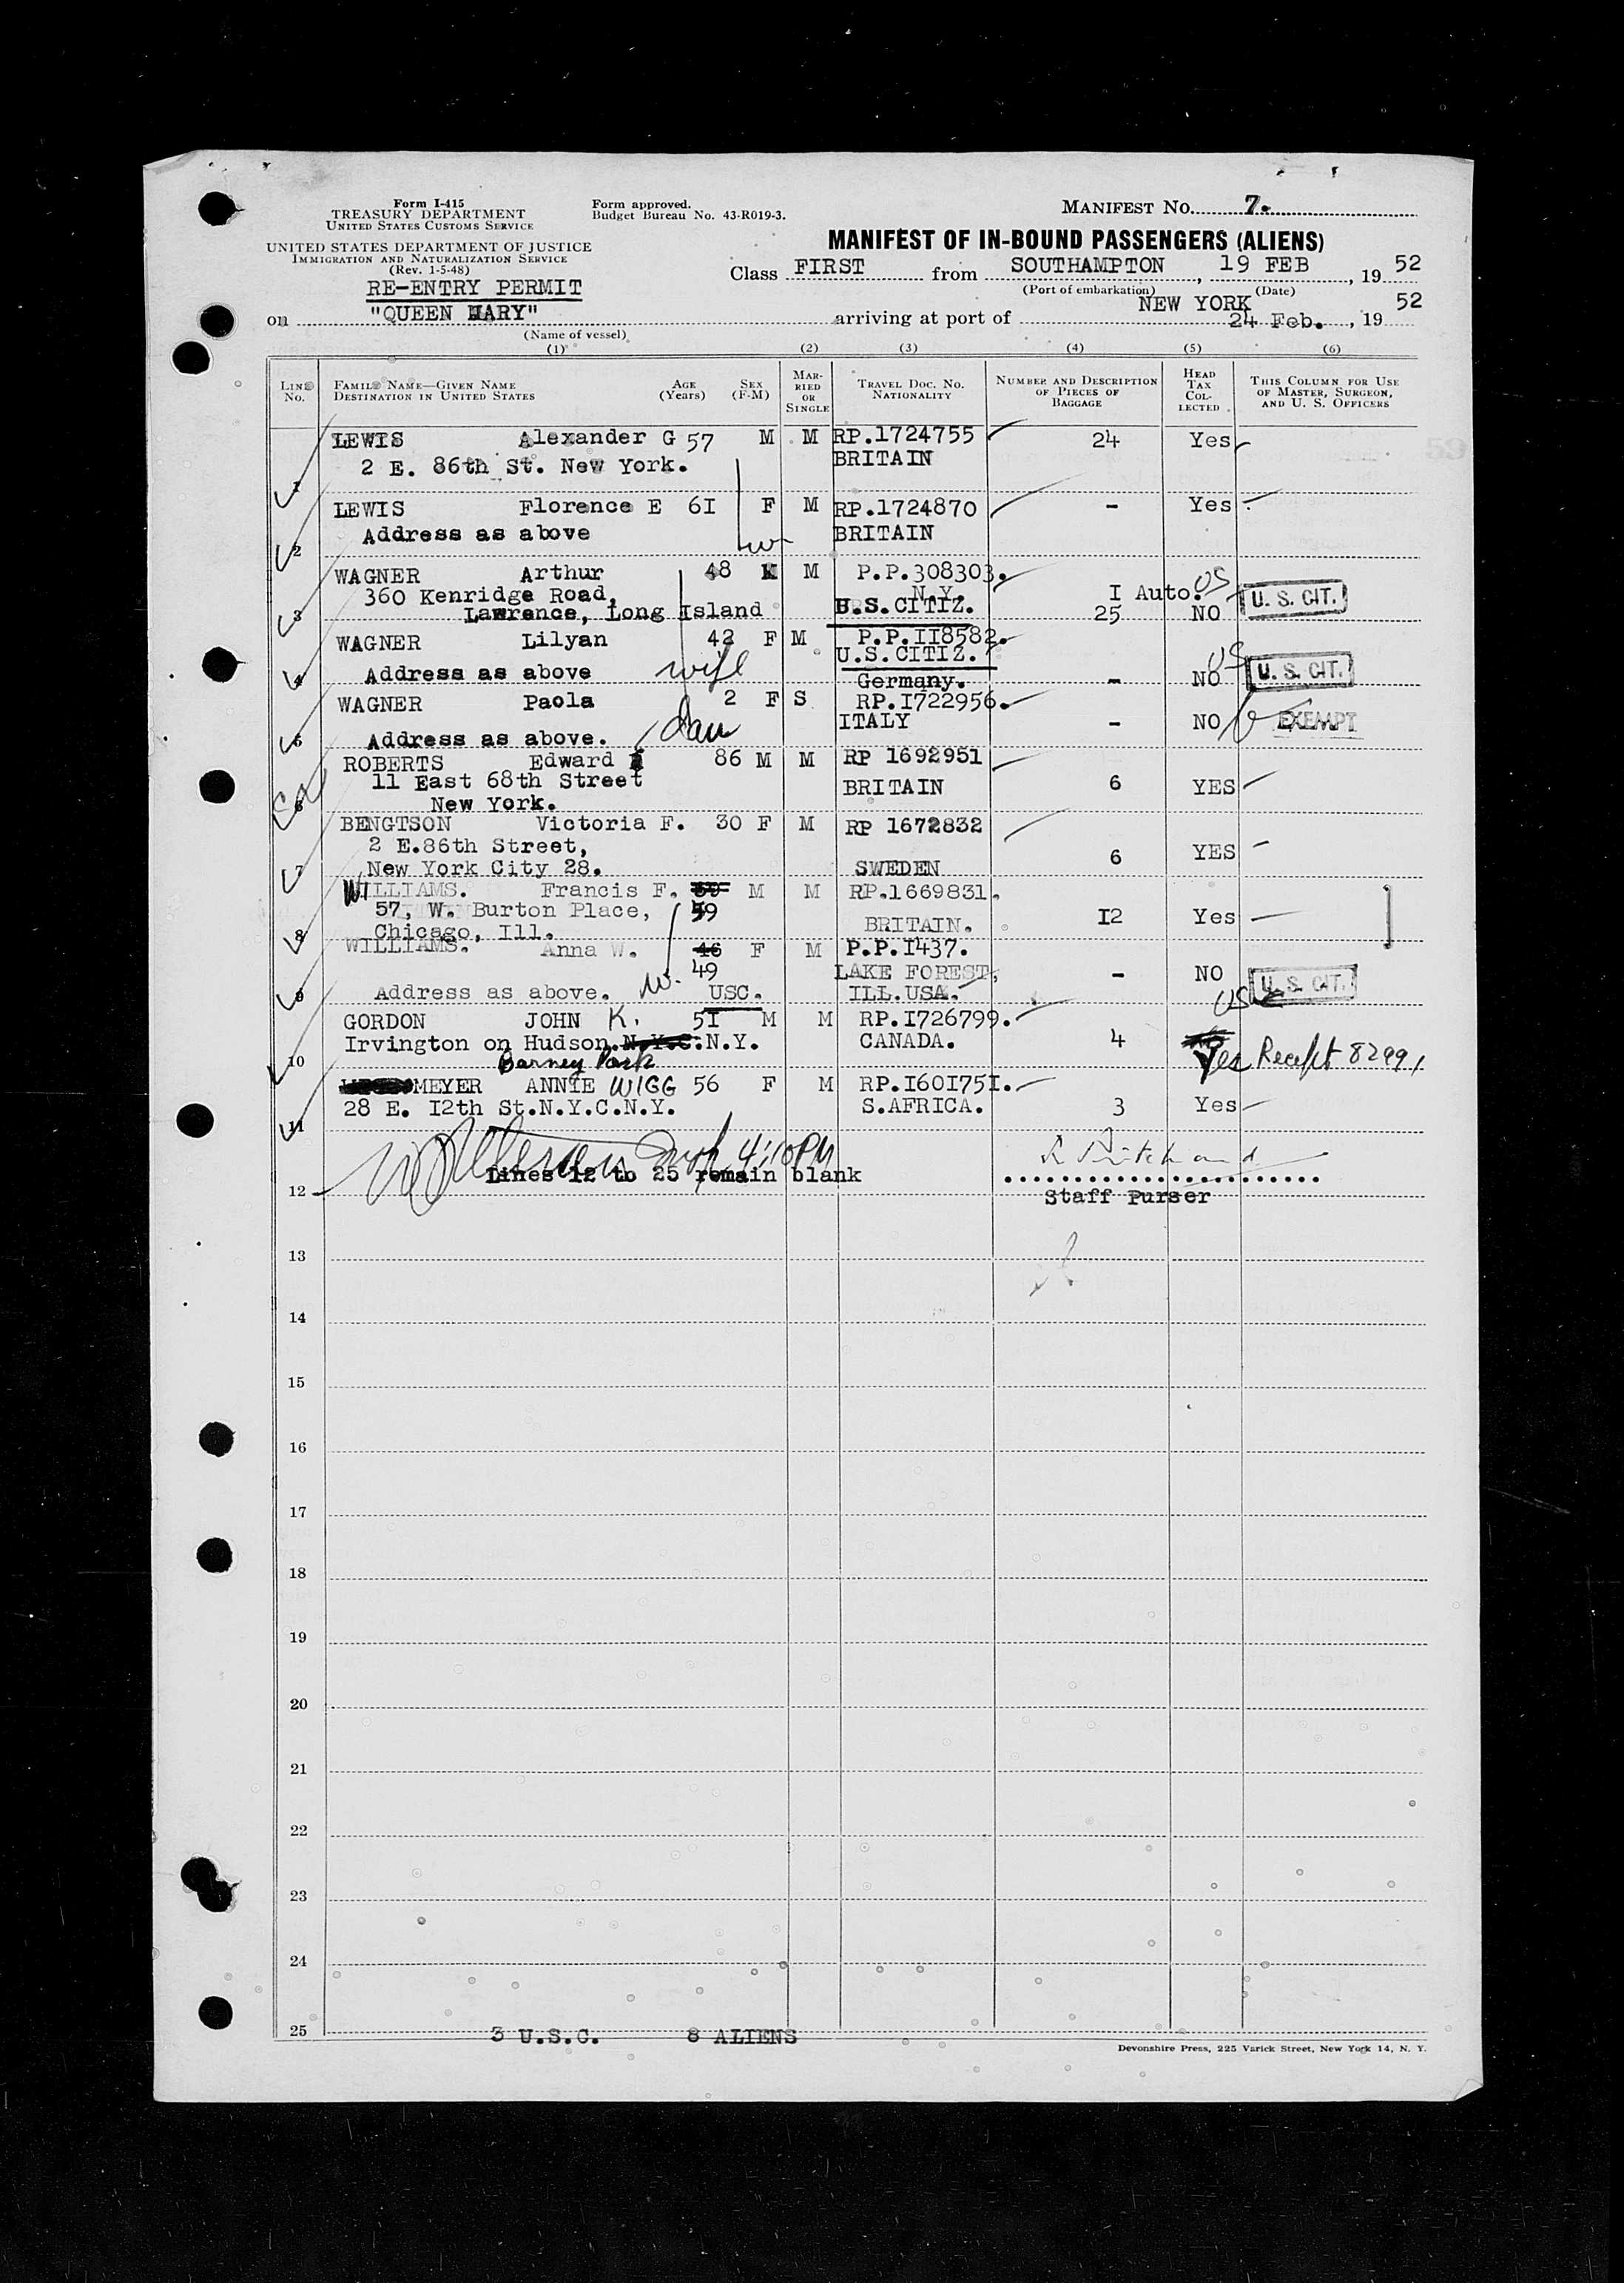 Form I-415
TREASURY DEPARTMENT
UNITED STATES CUSTOMS SERVICE
Form approved.
Budget Bureau No. 43-R019-3.
MANIFEST NO. 7.
UNITED STATES DEPARTMENT OF JUSTICE
IMMIGRATION AND NATURALIZATION SERVICE
(Rev. 1-5-48)
MANIFEST OF IN-BOUND PASSENGERS (ALIENS)
RE-ENTRY PERMIT
Class FIRST from SOUTHAMPTON, 19 FEB, 19 52
(Port of embarkation) (Date)
on "QUEEN MARY" arriving at port of NEW YORK 24 Feb., 19 52
(Name of vessel)
(1) (2) (3) (4) (5) (6)
LINE NO. FAMILY NAME—GIVEN NAME DESTINATION IN UNITED STATES AGE (Years) SEX (F-M) MARRIED OR SINGLE TRAVEL DOC. NO. NATIONALITY NUMBER AND DESCRIPTION OF PIECES OF BAGGAGE HEAD TAX COLLECTED THIS COLUMN FOR USE OF MASTER, SURGEON, AND U. S. OFFICERS
LEWIS Alexander G 57 M M RP.1724755 24 Yes
2 E. 86th St. New York. BRITAIN
1
LEWIS Florence E 6I F M RP.1724870 - Yes
2 Address as above w BRITAIN
WAGNER Arthur 48 M M P.P.308303.
360 Kenridge Road, N.Y. I Auto. US U. S. CIT.
3 Lawrence, Long Island U.S.CITIZ. 25 NO
WAGNER Lilyan 42 F M P.P.II8582.
U.S.CITIZ. US U. S. CIT.
4 Address as above wife Germany. - NO
WAGNER Paola 2 F S RP.I722956.
ITALY - NO EXEMPT
5 Address as above. dau
ROBERTS Edward 86 M M RP 1692951
11 East 68th Street BRITAIN 6 YES
6 New York.
BENGTSON Victoria F. 30 F M RP 1672832
2 E.86th Street, 6 YES
7 New York City 28. SWEDEN
WILLIAMS. Francis F. M M RP.1669831.
57, W. Burton Place, 59 BRITAIN. I2 Yes
8 Chicago, Ill.
WILLIAMS. Anna W. 46 F M P.P.I437.
49 LAKE FOREST, - NO U. S. CIT.
9 Address as above. w. USC. ILL.USA. USC
GORDON JOHN K. 5I M M RP.I726799.
Irvington on Hudson.N.Y.C.N.Y. CANADA. 4 Yes Receipt 82991
10 Barney Park
MEYER ANNIE WIGG 56 F M RP.I60I75I.
28 E. I2th St.N.Y.C.N.Y. S.AFRICA. 3 Yes
11
4:10 PM
Lines 12 to 25 remain blank
12 Staff Purser
13
14
15
16
17
18
19
20
21
22
23
24
25 3 U.S.C. 8 ALIENS
Devonshire Press, 225 Varick Street, New York 14, N. Y.